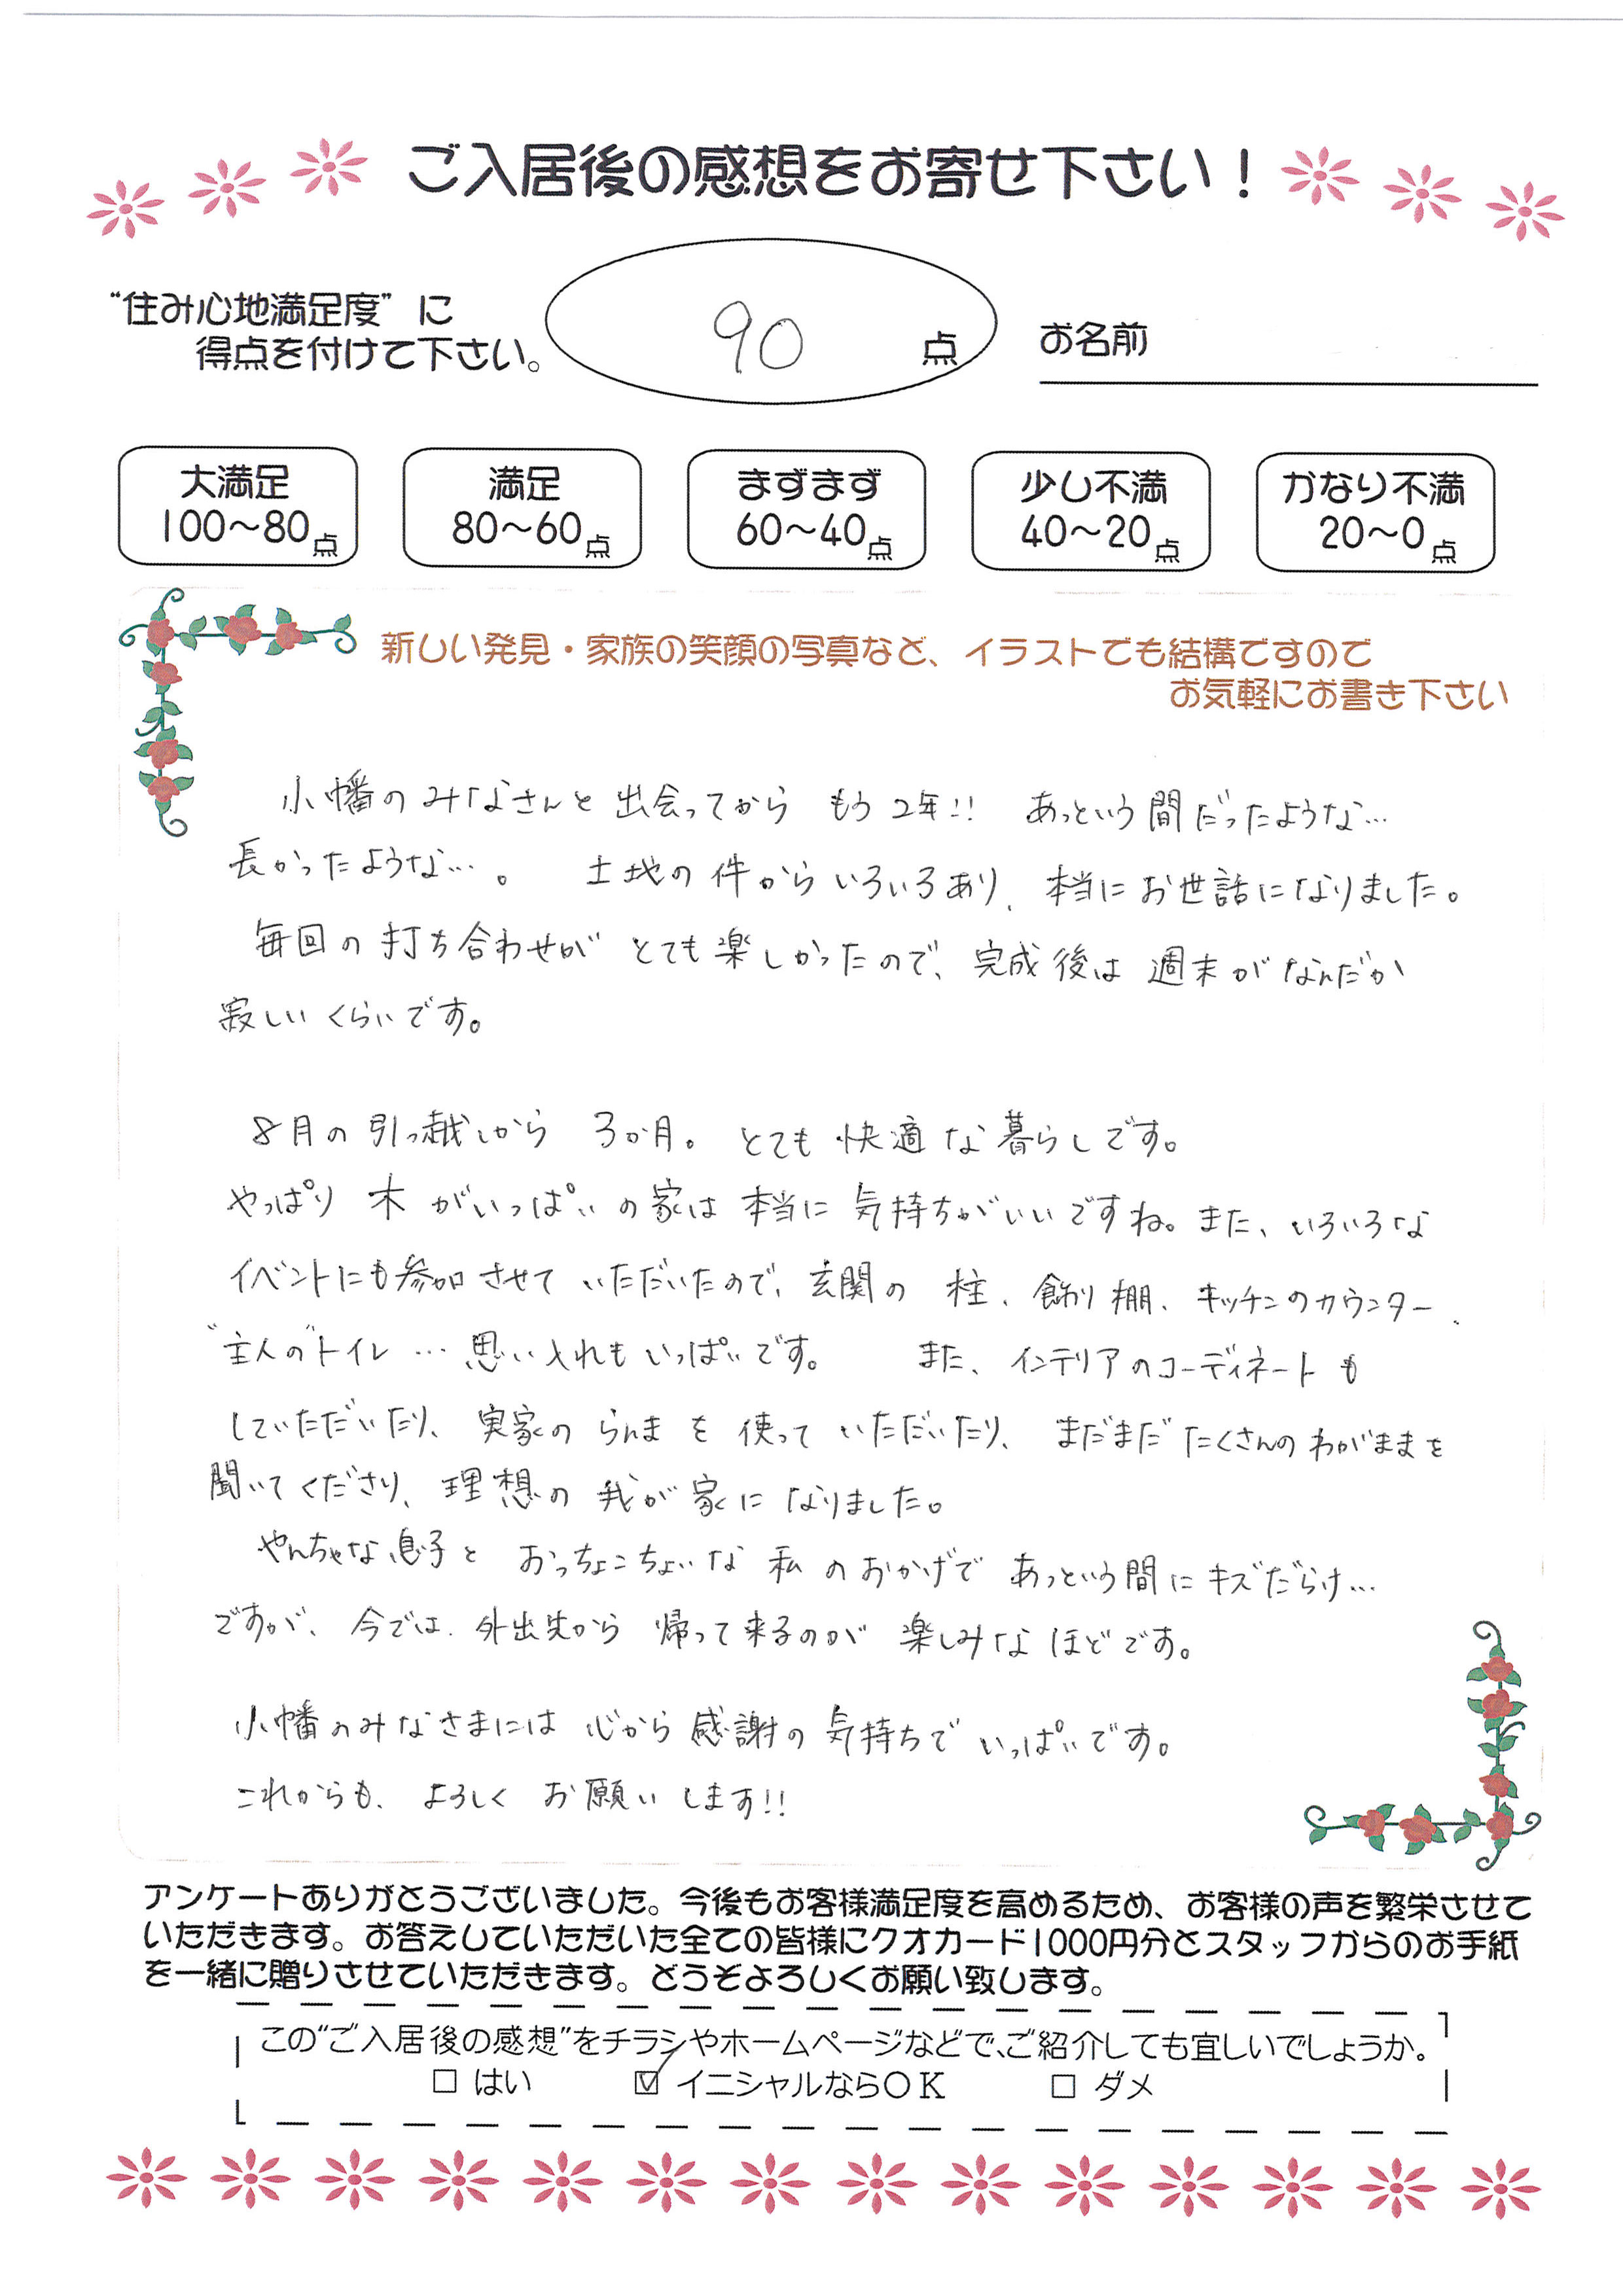 ご入居後の感想をお寄せ下さい！
“住み心地満足度”に
得点を付けて下さい。
90点
お名前
大満足
100～80点
満足
80～60点
まずまず
60～40点
少し不満
40～20点
かなり不満
20～0点
新しい発見・家族の笑顔の写真など、イラストでも結構ですので
お気軽にお書き下さい
小幡のみなさんと出会ってから もう2年!! あっという間だったような…
長かったような…。 土地の件からいろいろあり、本当にお世話になりました。
毎回の打ち合わせが とても楽しかったので、完成後は 週末がなんだか
寂しいくらいです。
8月の引っ越しから 3か月。とても快適な暮らしです。
やっぱり 木がいっぱいの家は本当に気持ちがいいですね。また、いろいろな
イベントにも参加させていただいたので、玄関の 柱、飾り棚、キッチンのカウンター、
“主人の”トイレ… 思い入れもいっぱいです。 また、インテリアのコーディネートも
していただいたり、実家の らんま を 使っていただいたり、まだまだたくさんのわがままを
聞いてくださり、理想の 我が家になりました。
やんちゃな息子と おっちょこちょいな 私のおかげで あっという間にキズだらけ…
ですが、今では、外出先から 帰って来るのが 楽しみなほどです。
小幡のみなさまには 心から感謝の気持ちで いっぱいです。
これからも、よろしく お願いします!!
アンケートありがとうございました。今後もお客様満足度を高めるため、お客様の声を繁栄させて
いただきます。お答えしていただいた全ての皆様にクオカード1000円分とスタッフからのお手紙
を一緒に贈りさせていただきます。どうぞよろしくお願い致します。
この“ご入居後の感想”をチラシやホームページなどで、ご紹介しても宜しいでしょうか。
□ はい ☑ イニシャルならOK □ ダメ